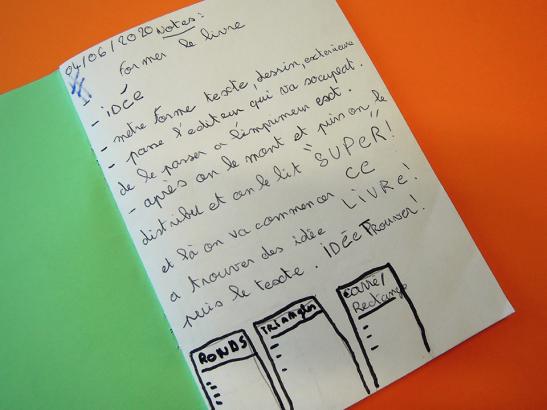 04/06/2020 Notes:
former le livre
- iDée
- metre forme texte, dessin, exterieure
- passe l'editeur qui va socupeat.
de le passer a l'emprimeur est.
- après on le mont et puis on le
distribut et on le lit "SUPER!"
et là on va commencer CE
a trouver des idée LiVRe!
puis le texte. iDée Trouver!
RONDS
TRiANgles
carré/
Rectangle